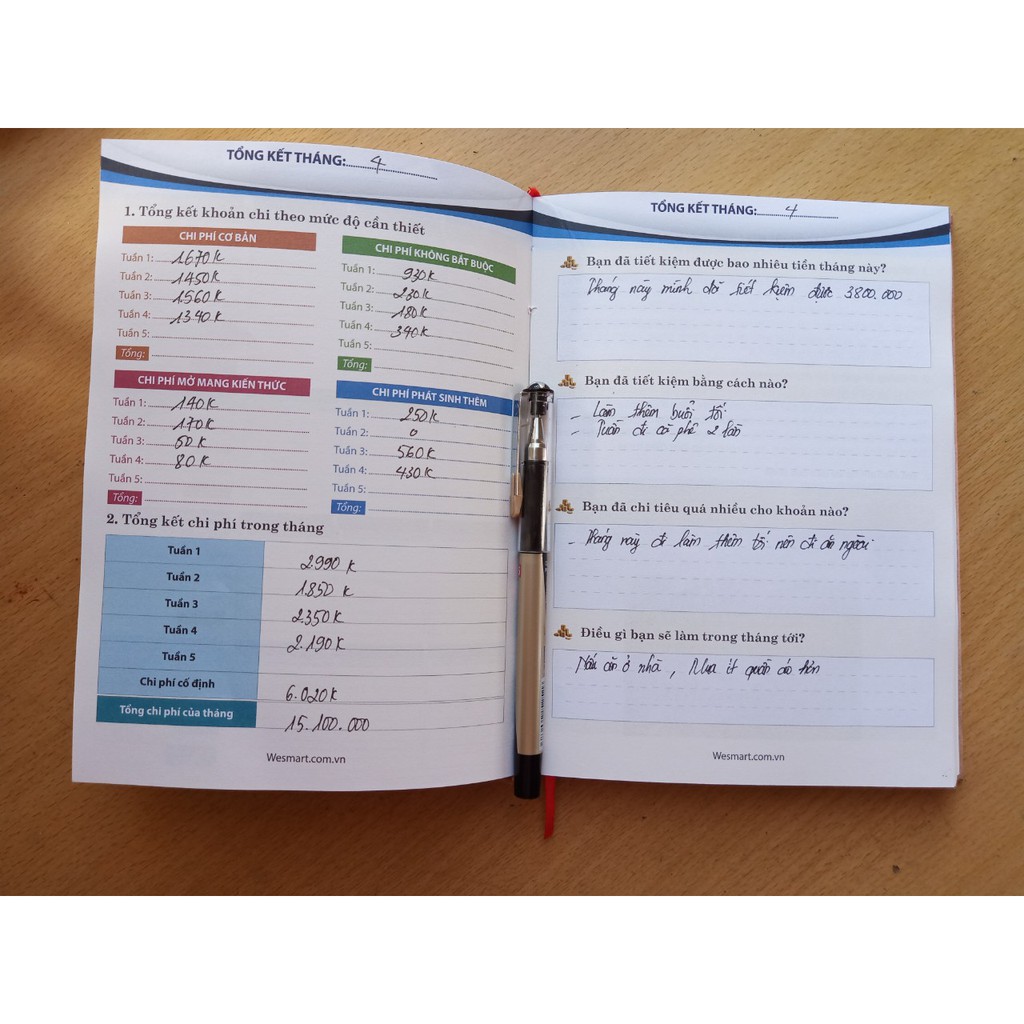 TỔNG KẾT THÁNG: 4
1. Tổng kết khoản chi theo mức độ cần thiết
CHI PHÍ CƠ BẢN
Tuần 1: 1670K
Tuần 2: 1450K
Tuần 3: 1560K
Tuần 4: 1340K
Tuần 5:
Tổng:
CHI PHÍ KHÔNG BẮT BUỘC
Tuần 1: 930K
Tuần 2: 230K
Tuần 3: 180K
Tuần 4: 340K
Tuần 5:
Tổng:
CHI PHÍ MỞ MANG KIẾN THỨC
Tuần 1: 140K
Tuần 2: 170K
Tuần 3: 50K
Tuần 4: 80K
Tuần 5:
Tổng:
CHI PHÍ PHÁT SINH THÊM
Tuần 1: 250K
Tuần 2: 0
Tuần 3: 560K
Tuần 4: 430K
Tuần 5:
Tổng:
2. Tổng kết chi phí trong tháng
Tuần 1 2990K
Tuần 2 1850K
Tuần 3 2350K
Tuần 4 2.190K
Tuần 5
Chi phí cố định 6.020K
Tổng chi phí của tháng 15.100.000
Wesmart.com.vn
TỔNG KẾT THÁNG: 4
Bạn đã tiết kiệm được bao nhiêu tiền tháng này?
Tháng này mình đã tiết kiệm được 3800.000
Bạn đã tiết kiệm bằng cách nào?
- Làm thêm buổi tối
- Tuần đi cà phê 2 lần
Bạn đã chi tiêu quá nhiều cho khoản nào?
- Tháng này đi làm thêm tối nên đi ăn ngoài
Điều gì bạn sẽ làm trong tháng tới?
Nấu ăn ở nhà, Mua ít quần áo hơn
Wesmart.com.vn